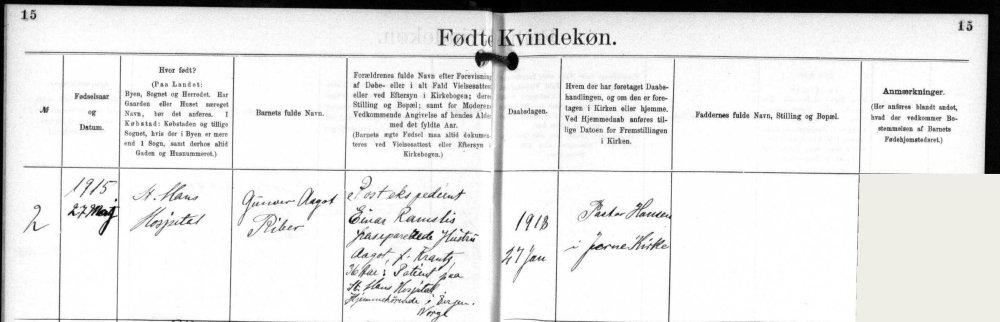 15
15
Fødte Kvindekøn.
№
Fødselsaar
og
Datum.
Hvor født?
(Paa Landet:
Byen, Sognet og Herredet. Har
Gaarden eller Huset særeget
Navn, bør det anføres. I
Købstad: Købstaden og tillige
Sognet, hvis der i Byen er mere
end 1 Sogn, samt derhos altid
Gaden og Husnummeret.)
Barnets fulde Navn.
Forældrenes fulde Navn efter Forevisning
af Døbe- eller i alt Fald Vielsesattest
eller ved Eftersyn i Kirkebogen; deres
Stilling og Bopæl; samt for Moderens
Vedkommende Angivelse af hendes Alder
med det fyldte Aar.
(Barnets ægte Fødsel maa altid dokumen-
teres ved Vielsesattest eller Eftersyn i
Kirkebogen.)
Daabsdagen.
Hvem der har foretaget Daabs-
handlingen, og om den er fore-
tagen i Kirken eller hjemme.
Ved Hjemmedaab anføres til-
lige Datoen for Fremstillingen
i Kirken.
Faddernes fulde Navn, Stilling og Bopæl.
Anmærkninger.
(Her anføres blandt andet,
hvad der vedkommer Be-
stemmelsen af Barnets
Fødehjemstedsret.)
2
1915
27
St. Hans
Hospital
Gunver Aagot
Riber
Postekspedient
Einar Ramstis
fraseparerede Hustru
Aagot, f. Krantz,
36 Aar; Patient paa
St. Hans Hospital
Hjemmehørende i Bergen.
Norge
1918
27 Jan
Pastor Hansen
i Jerne Kirke